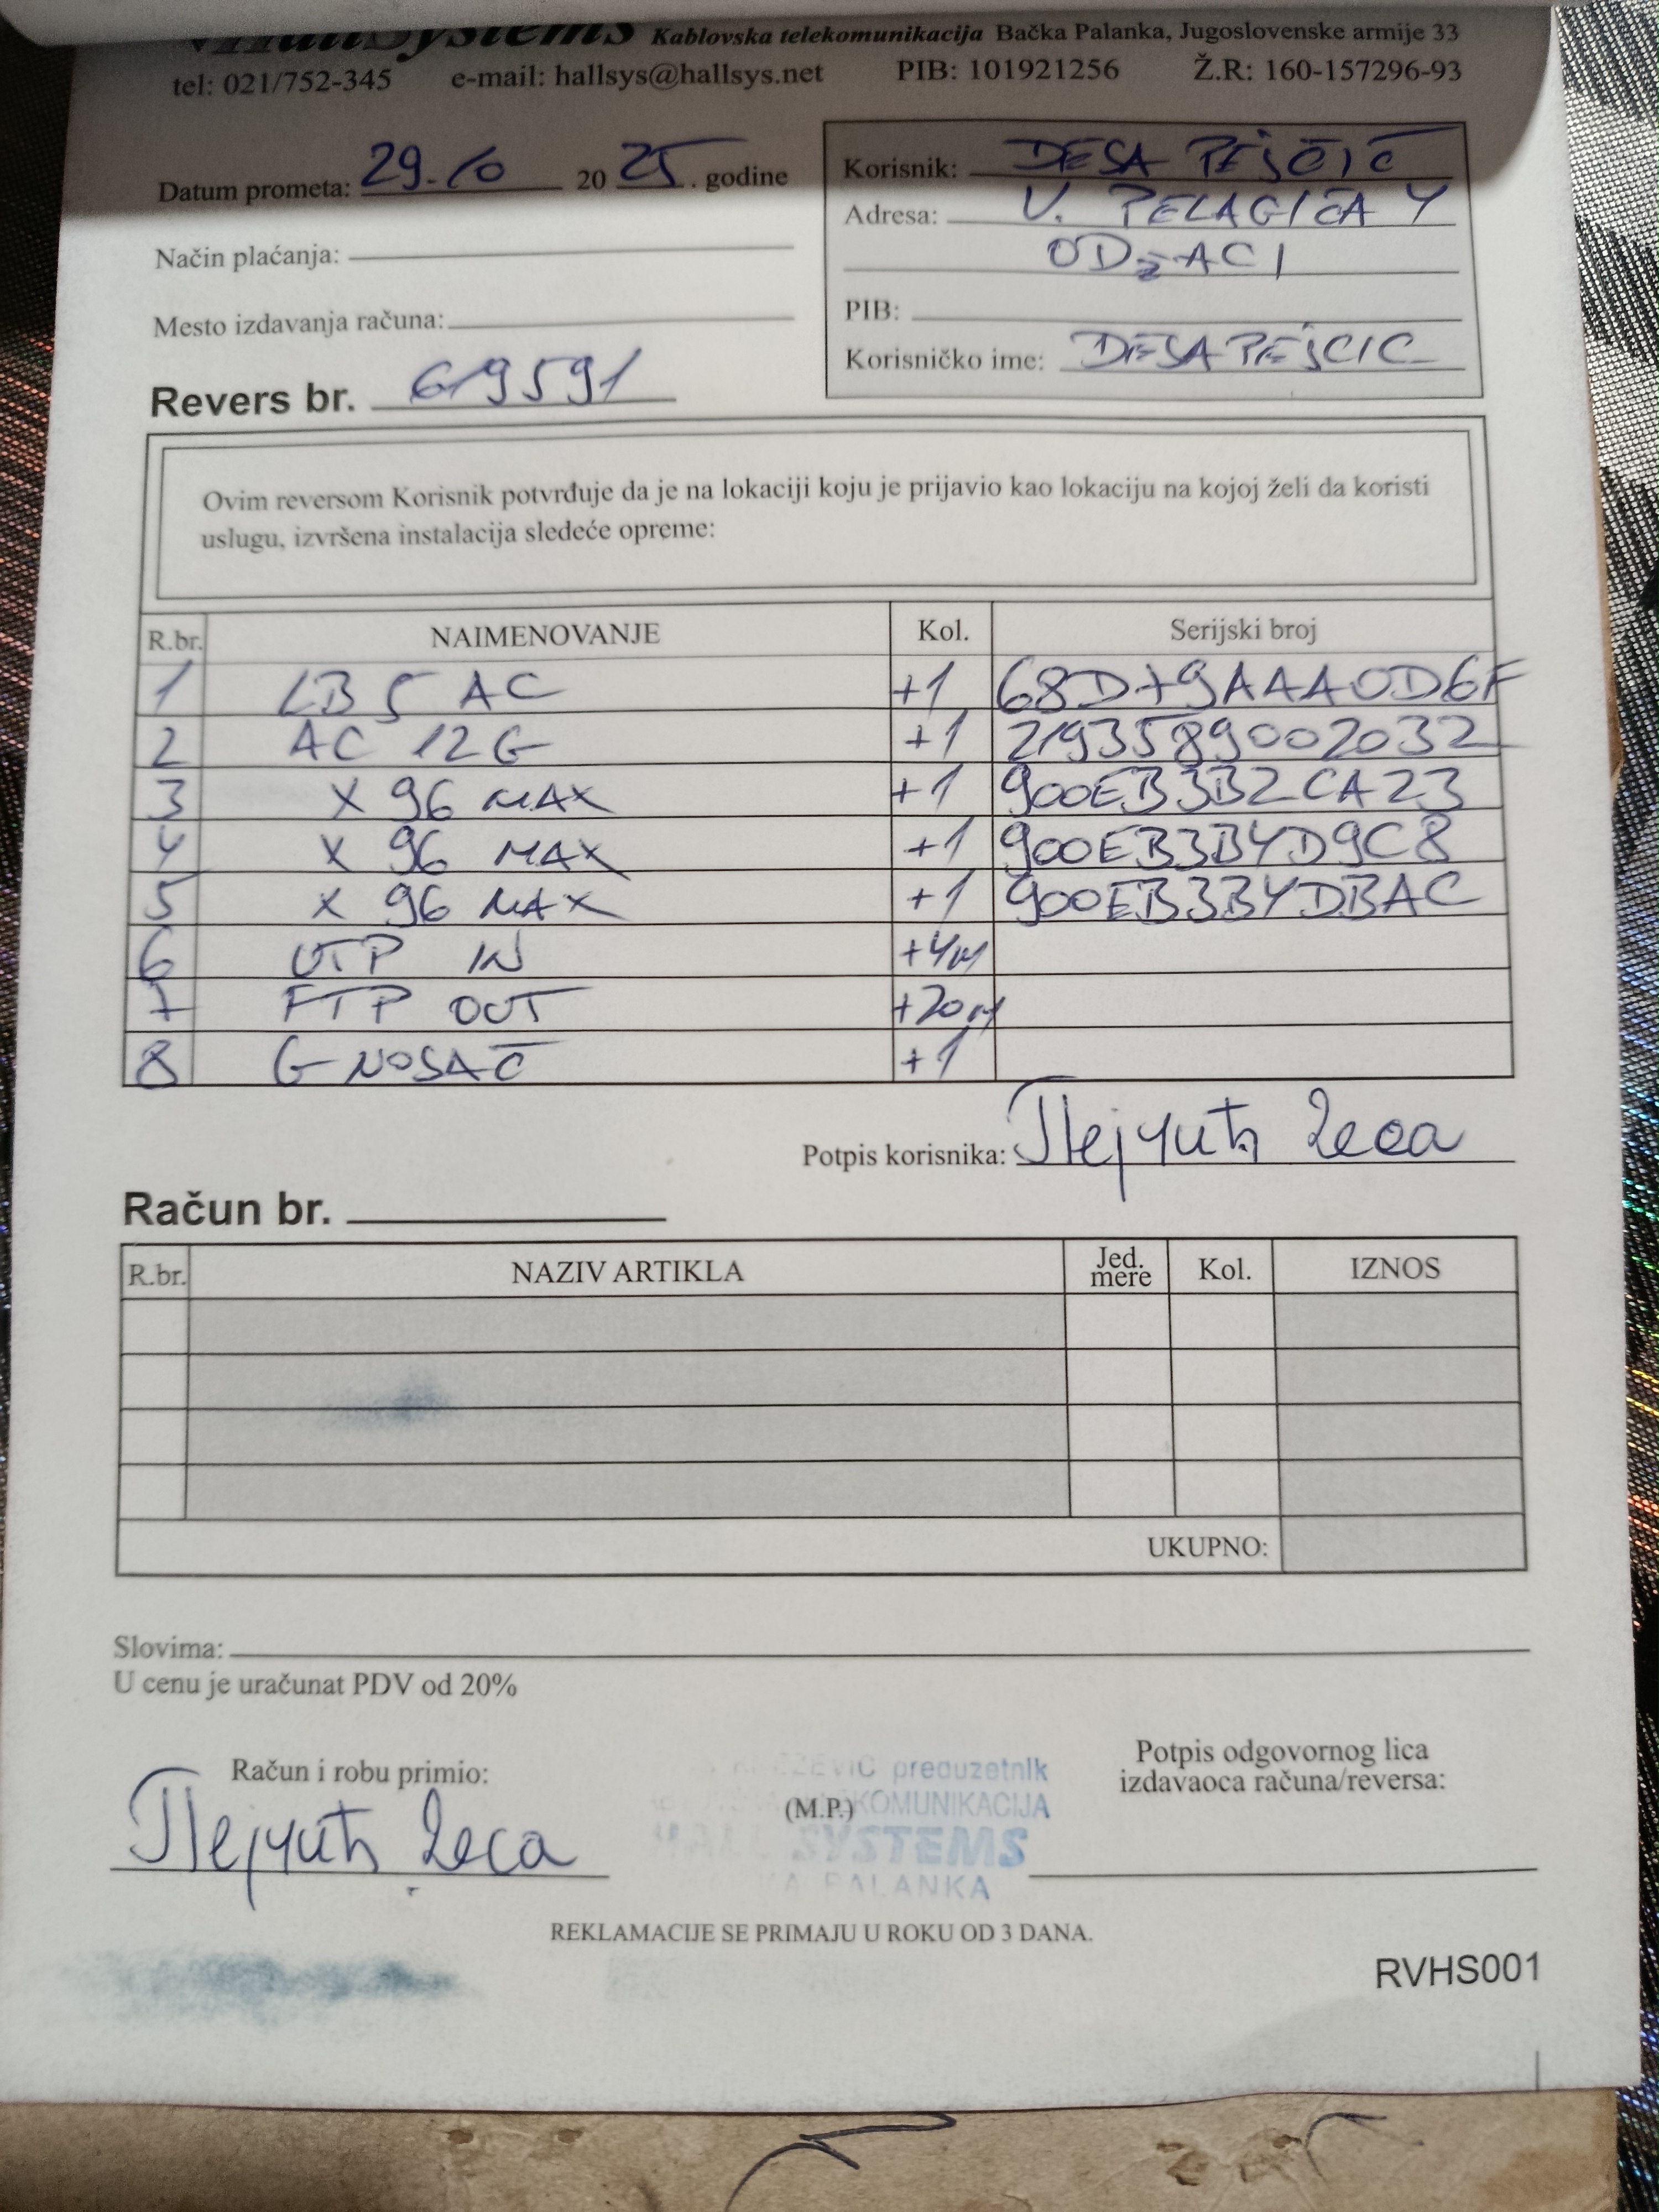 HallSystems Kablovska telekomunikacija Bačka Palanka, Jugoslovenske armije 33
tel: 021/752-345 e-mail: hallsys@hallsys.net PIB: 101921256 Ž.R: 160-157296-93
Datum prometa: 29.10 2025. godine
Način plaćanja:
Mesto izdavanja računa:
Revers br. 619591
Korisnik: DESA PEJČIĆ
Adresa: V. PELAGIĆA 4
ODŽACI
PIB:
Korisničko ime: DESAPEJCIC
Ovim reversom Korisnik potvrđuje da je na lokaciji koju je prijavio kao lokaciju na kojoj želi da koristi
uslugu, izvršena instalacija sledeće opreme:
R.br. NAIMENOVANJE Kol. Serijski broj
1 LB 5 AC +1 68D79AAA0D6F
2 AC 12G +1 2193589002032
3 X 96 MAX +1 900EB3B2CA23
4 X 96 MAX +1 900EB3B4D9C8
5 X 96 MAX +1 900EB3B4DBAC
6 UTP IN +4M
7 FTP OUT +20M
8 G NOSAČ +1
Potpis korisnika: Пејчић Деса
Račun br.
R.br. NAZIV ARTIKLA Jed. mere Kol. IZNOS
UKUPNO:
Slovima:
U cenu je uračunat PDV od 20%
Račun i robu primio:
Пејчић Деса
preduzetnik
(M.P.) KOMUNIKACIJA
HALL SYSTEMS
PALANKA
Potpis odgovornog lica
izdavaoca računa/reversa:
REKLAMACIJE SE PRIMAJU U ROKU OD 3 DANA.
RVHS001